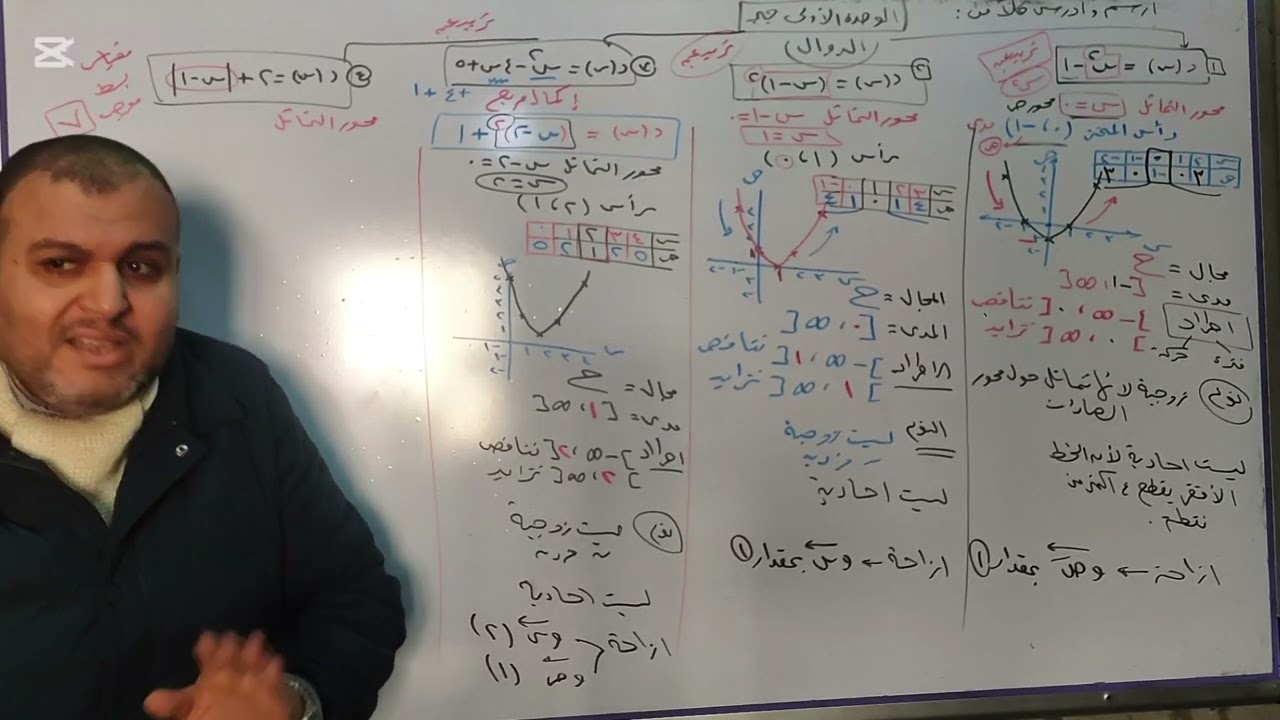 ارسم وادرس كلاً من :
الوحده الأولى جبر
(الدوال)
١ د(س) = س٢ - ١
تربيعيه
محور التماثل س = ٠ محور ص
رأس المنحنى (٠ ، -١)
س ٢ ١ ٠ -١ -٢
ص ٣ ٠ -١ ٠ ٣
مجال = ح
مدى = [-١ ، ∞[
اطراد ]-∞ ، ٠[ تناقص
]٠ ، ∞[ تزايد
نوع زوجية لانها تماثل حول محور
الصادات
ليست احادية لأن الخط
الأفقى يقطع
نقطه .
ازاحة ← وص بمقدار ١
٢ د(س) = (س - ١)٢
تربيعيه
محور التماثل س - ١ = ٠
س = ١
رأس (١ ، ٠)
س ٣ ٢ ١ ٠ -١
ص ٤ ١ ٠ ١ ٤
المجال = ح
المدى = [٠ ، ∞[
الاطراد ]-∞ ، ١[ تناقص
]١ ، ∞[ تزايد
النوع ليست زوجية
ليست احادية
ازاحة ← وس بمقدار ١
تربيعيه
٣ د(س) = س٢ - ٤س + ٥
إكمال مربع + ٤ + ١
د(س) = (س - ٢)٢ + ١
محور التماثل س - ٢ = ٠
س = ٢
رأس (٢ ، ١)
س ٤ ٣ ٢ ١ ٠
ص ٥ ٢ ١ ٢ ٥
مجال = ح
مدى = [١ ، ∞[
اطراد ]-∞ ، ٢[ تناقص
]٢ ، ∞[ تزايد
نوع ليست زوجية
ليست احادية
ازاحة وس (٢)
وص (١)
٤ د(س) = ٢ + |س - ١|
محور التماثل